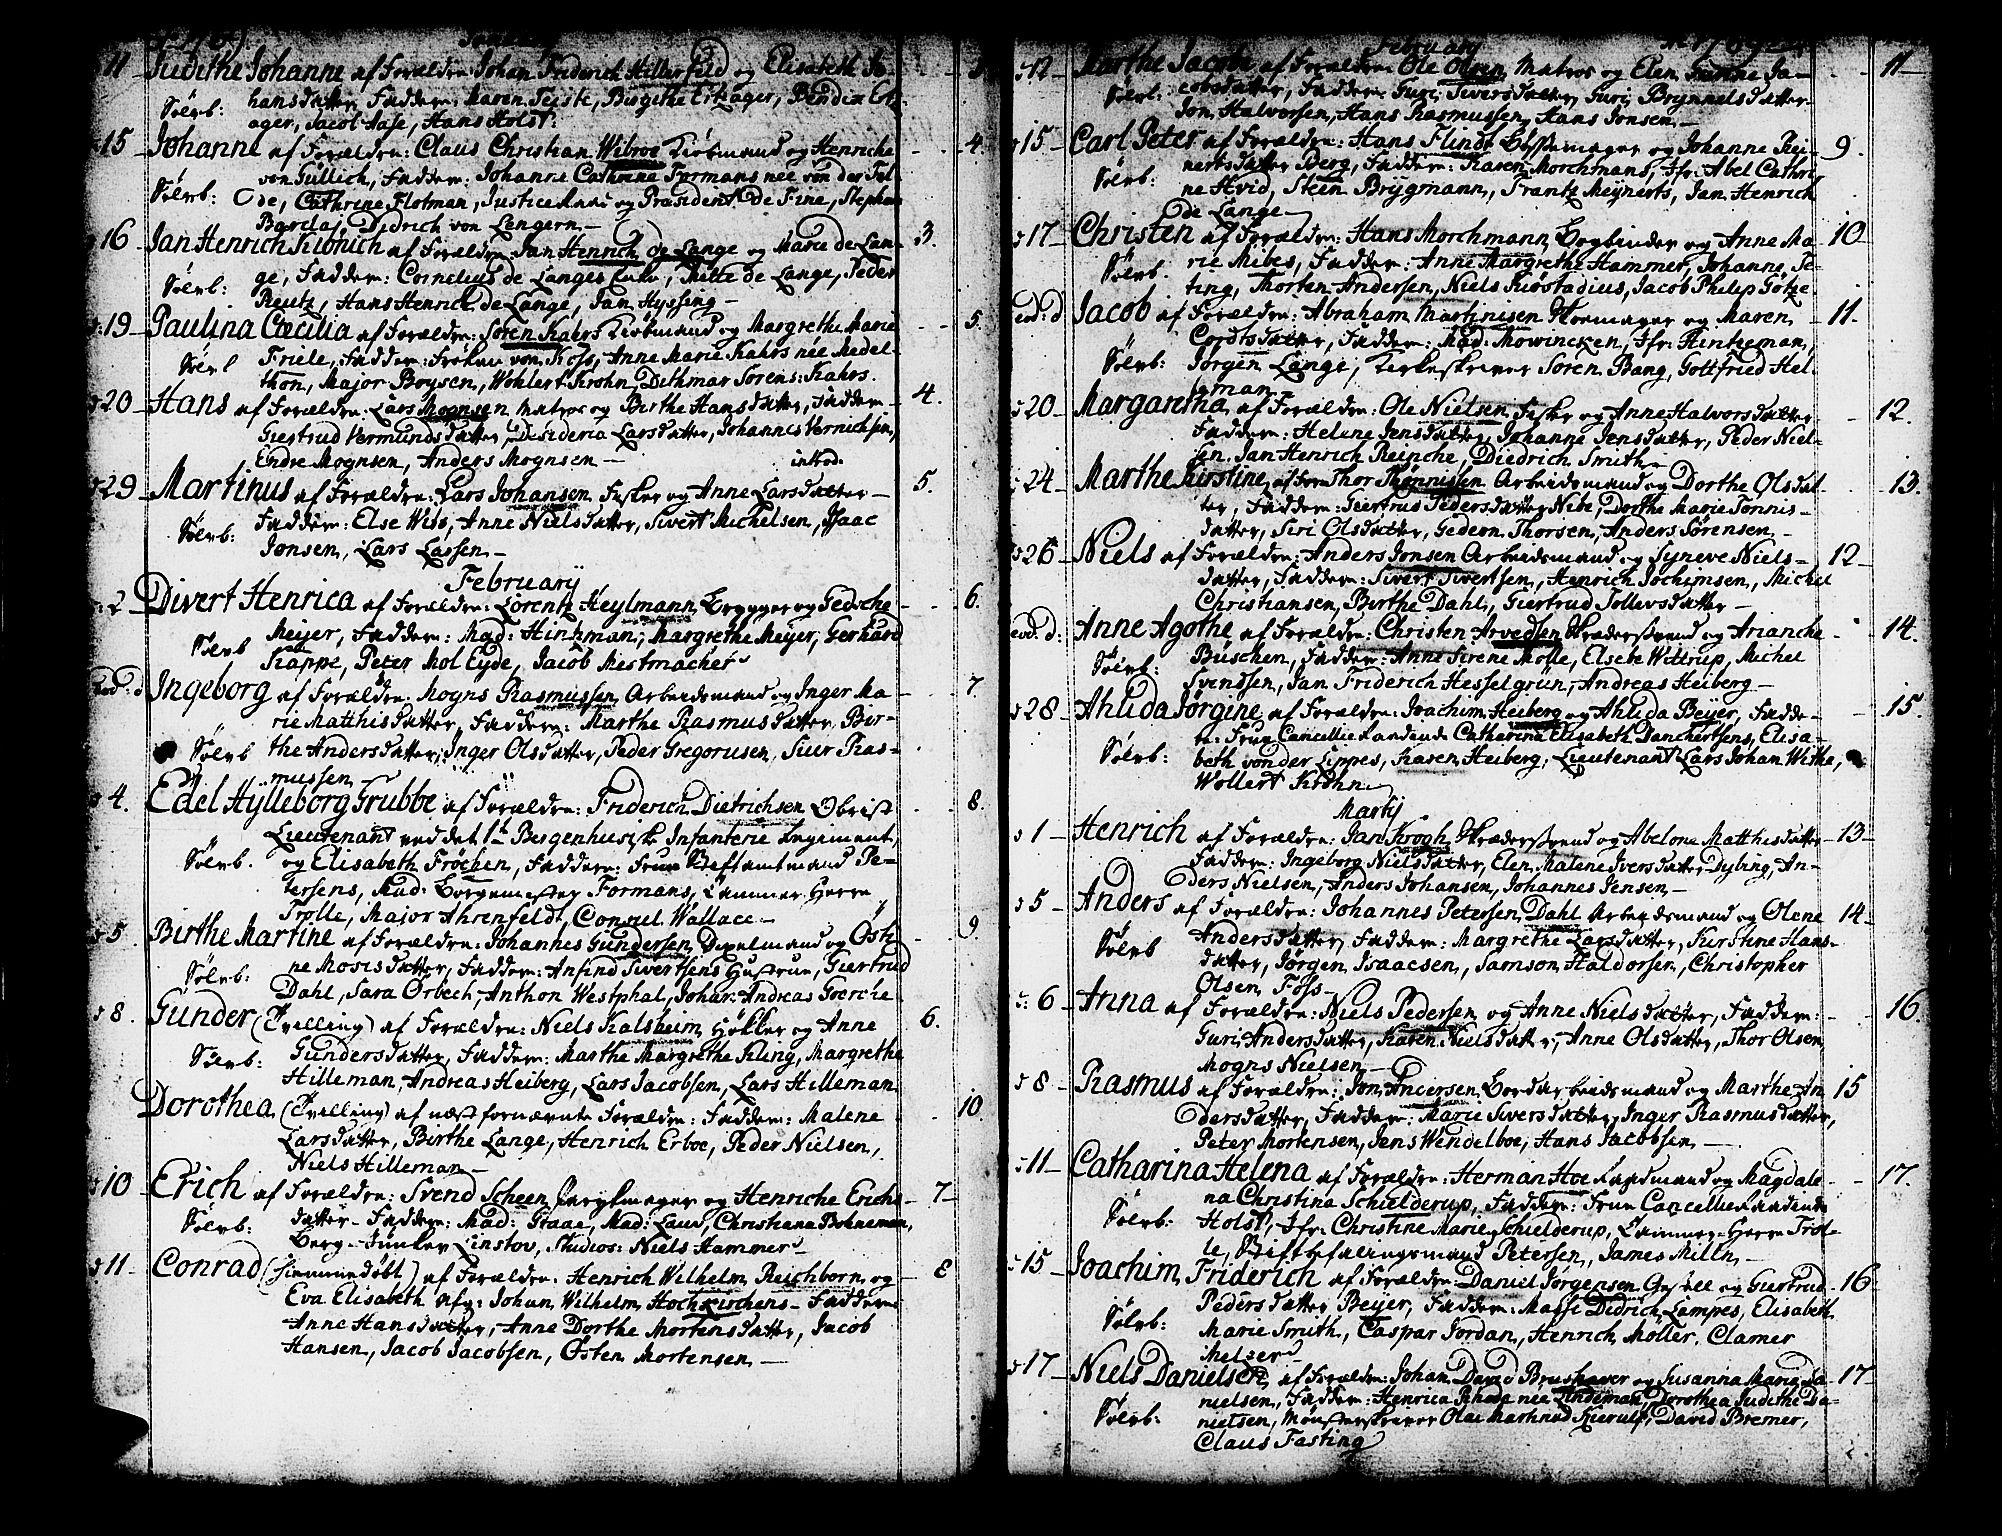 11 Judithe Johanne af Forældre Johan Friderich Hillerfeld og Elisabeth Jo-
Sölvb: hansdatter, Faddere: Maren Teiste, Birgithe Ertzager, Bendix Ert-
ager, Jacob Aase, Hans Holst.
15 Johanne af Forældre: Claus Christian Wibroe Kiöbmand og Henriche 4
von Jullich, Faddere: Johanne Cathrine Formans née von der
Sölvb: Ode, Cathrine Flotman, Justiceraad og Præsident De Fine, Stephan
Didrich von Lengern
16 Jan Henrich af Forældre Jan Henrich de Lange og Marie de Lan- 3.
Sölvb: ge, Faddere: Cornelius de Langes Enke, Mette de Lange, Peder
Reutz, Hans Henrich de Lange, Jan Hyssing
19 Paulina Cæcilia af Forældre: Sören Kahrs Kiöbmand og Margrethe Marie 5.
Sölvb Friele, Faddere: Fröken von Koss, Anne Marie Kahrs née Medel-
thon, Major Boysen, Wohlert Krohn, Dithmar Sörens: Kahrs.
20 Hans af Forældre: Lars Mognsen Matros og Birthe Hansdatter, Faddere 4.
Giertrud Vermundsdatter, Desideria Larsdatter, Johannes Vernichsen,
Endre Mognsen, Anders Mognsen introd.
29 Martinus af Forældre: Lars Johansen Fisker og Anne Larsdatter 5.
Sölvb: Faddere: Else Wiis, Anne Nielsdatter, Sivert Michelsen, Isaac
Jonsen, Lars Lassen
Februarij
2 Divert Henrica af Forældre: Lorentz Heylmann Brygger og Gedsche 6.
Sölvb Meijer, Faddere: Mad: Hinkman, Margrethe Meijer, Gerhard
Kappe, Peter Mol Eyde, Jacob Mestmacher
eod: d Ingeborg af Forældre: Mogns Rasmussen Arbeidsmand og Inger Ma- 7.
rie Matthisdatter, Faddere: Marthe Rasmusdatter, Bir-
Sölvb the Andersdatter, Inger Olsdatter, Peder Gregoriusen, Siur Ras-
mussen
4. Edel Hylleborg Grubbe af Forældre: Friderich Dietrichsen Obrist 8.
Lieutenant ved det 1te Bergenhusisk Infanterie Regiment,
Sölvb. og Elisabeth Fröchen, Faddere: Frue Stiftamtmand Pe-
tersens, Mad: Borgemester Formans, Cammer Herre
Trolle, Major Ahrenfeldt, Consul Wallace
5. Birthe Martine af Forældre: Johannes Gundersen og Öste 9.
Sölvb: ne Mosisdatter, Faddere: Anfind Sivertsens Hustrue, Giertrud
Dahl, Sara Orbech, Anthon Westphal, Johan Andreas Goerche
8. Gunder (Tvilling) af Forældre: Niels Kalsheim, Höker og Anne 6.
Sölvb: Gundersdatter, Faddere: Marthe Margrethe Kling, Margrethe
Hilleman, Andreas Heiberg, Lars Jacobsen, Lars Hilleman
Dorothea (Tvilling) af næst fornævnte Forældre: Faddere: Malene 10
Larsdatter, Birthe Lange, Henrich Erboe, Peder Nielsen,
Niels Hilleman
10 Erich af Forældre: Svend Scheen Parykmager og Henriche Erichs- 7
Sölvb: datter Faddere: Mad: Staae, Mad: Laus, Christiana Bohneman,
Berg-Junker Linstov, Studios: Niels Hammer
11 Conrad (hiemmedöbt) af Forældre: Henrich Wilhelm Reichborn og 8
Eva Elisabeth Johan Wilhelm Hochkirchens Faddere
Anne Hansdatter, Anne Dorthe Mortensdatter, Jacob
Hansen, Jacob Jacobsen, Östen Mortensen
Februarij 1769
12 Marthe Jacobe af Forældre Ole Olsen Matros og Elen Ja- 11
Sölvb: cobsdatter, Faddere Guri Siversdatter, Guri Brynnelsdatter
Jon Halvorsen, Hans Rasmussen, Hans Jonsen
15 Carl Peter af Forældre: Hans Flindt Bössemager og Johanne Rei- 9.
Sölvb: nertsdatter Berg, Faddere: Karen Morchmans, Jfr: Abel Cathri-
ne Hvid, Steen Brygmann, Frantz Meynerts, Jan Henrich
de Lange
17 Christen af Forældre: Hans Morchmann Bogbinder og Anne Ma- 10
Sölvb. rie Mibes, Faddere: Anne Margrethe Hammer, Johanne Fe-
ting, Morten Andersen, Niels Jacob Philip Götze
eod: d Jacob af Forældre: Abraham Martinisen Skoemager og Maren 11.
Cordtsdatter, Faddere: Mad: Mowincken, Jfr: Hinkeman,
Sölvb: Jörgen Lange, Kirkeskriver Sören Bang, Gottfried Hel-
man
20 Margaretha af Forældre: Ole Nielsen Fisker og Anne Halvorsdatter 12.
Faddere: Helene Jensdatter, Johanne Jensdatter, Peder Niel-
sen, Jan Henrich Reinche, Diedrich Smith
24 Marthe Kirstine af For: Thor Thönnissen Arbeidsmand og Dorthe Olsdat- 13.
ter, Faddere: Giertrud Pedersdatter Nibe, Dorthe Marie Tönnis-
datter, Siri Olsdatter, Gedeon Thorsen, Anders Sörensen
26 Niels af Forældre: Anders Jonsen Arbeidsmand og Syneve Niels- 12
datter, Faddere: Sivert Sivertsen, Henrich Jochimsen, Michel
Christiansen, Birthe Dahl, Giertrud Tollevsdatter
eod: d: Anne Agothe af Forældre: Christen Arvedsen Skrædersvend og Arianche 14.
Sölvb: Büschen, Faddere: Anne Sirene Molle, Elsebe Wittrup, Michel
Svendsen, Jan Friderich Hesselgrün, Andreas Heiberg
28 Ahlida Jörgine af Forældre: Joachim Heiberg og Ahlida Beyer, Fadde- 15.
re: Frue Cancellie Raadinde Catharina Elisabeth Danchertsens, Elisa-
Sölvb: beth von der Lippes, Karen Heiberg, Lieutenant Lars Johan Withe,
Wollert Krohn
Martij
1 Henrich af Forældre: Jan Krogh Skrædersvend og Abelone Matthisdatter 13
Faddere: Ingeborg Nielsdatter, Elen Malene Iversdatter Dybing, An-
ders Nielsen, Anders Johansen, Johannes Jensen
5 Anders af Forældre: Johannes Petersen Dahl Arbeidsmand og Olene 14
Sölvb Andersdatter, Faddere: Margrethe Larsdatter, Kirstine Hans-
datter, Jörgen Isaacsen, Samson Haldorsen, Christopher
Olsen Foss
6 Anna af Forældre: Niels Pedersen og Anne Nielsdatter, Faddere: 16.
Guri Andersdatter, Karen Nielsdatter, Anne Olsdatter, Thor Olsen,
Mogns Nielsen
8 Rasmus af Forældre: Jon Andersen Bordarbeidsmand og Marthe An 15
dersdatter, Faddere: Marie Siversdatter, Inger Rasmusdatter,
Peter Mortensen, Jens Wendelboe, Hans Jacobsen
11 Catharina Helena af Forældre: Herman Hoe Raadmand og Magdale- 17.
na Christina Schielderup, Faddere: Frue Cancellie Raadinde
Sölvb: Holst, Jfr: Christine Marie Schielderup, Cammer-Herre Trol-
le, Stiftbefalingsmand Petersen, James Milln
15 Joachim Friderich af Forældre: Daniel Jörgensen og Giertrud 16
Pedersdatter Beijer, Faddere: Didrich Lampes, Elisabeth
Sölvb: Marie Smith, Caspar Jordan, Henrich Möller, Clamer
Melzer
17 Niels Danielsen af Forældre: Johan David og Susanna Maria Da- 17
nielsen, Faddere: Henrica née Lindeman, Dorothea Judithe Da-
Sölvb: nielsen, Mönsterskriver Olae Martinus Kierulf, David Bremer,
Claus Fasting